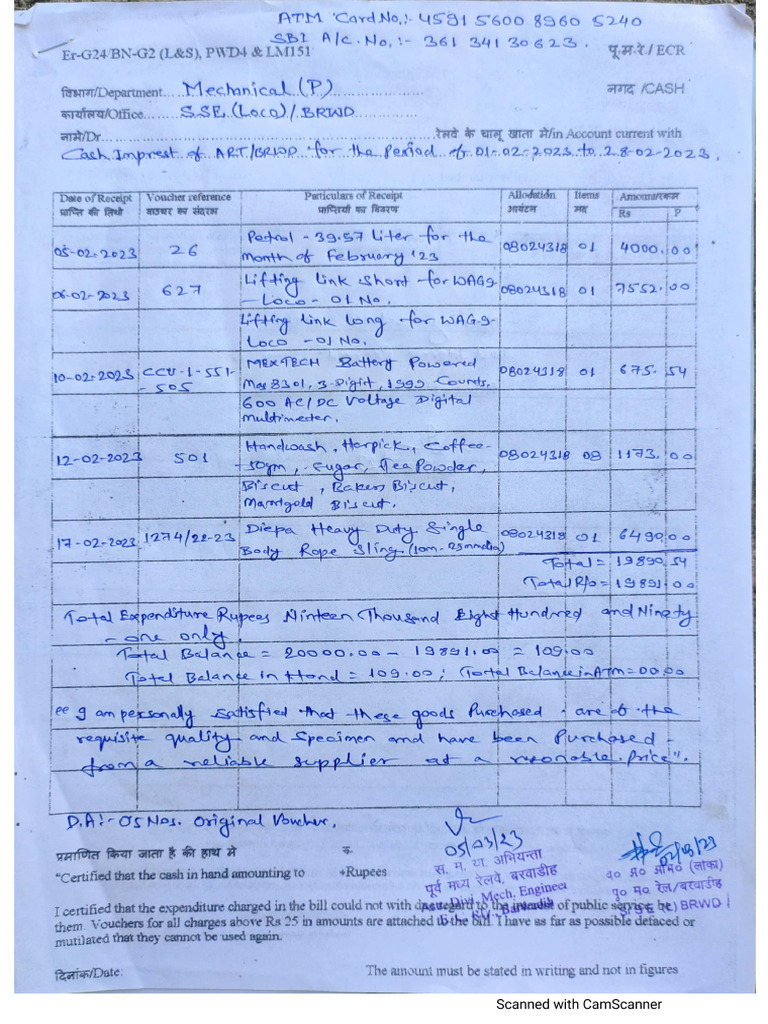 ATM Card No.:- 4591 5600 8960 5240
SBI A/c. No.:- 361 341 30623.
Er-G24/BN-G2 (L&S), PWD4 & LM151 पू.म.रे./ ECR
विभाग/Department Mechanical (P) नगद /CASH
कार्यालय/Office SSE (Loco) / BRWD
नामे/Dr रेलवे के चालू खाता मे/in Account current with
Cash Imprest of ART/BRWD for the Period of 01-02-2023 to 28-02-2023.
Date of Receipt Voucher reference Particulars of Receipt Allodation Items Amount/रकम
प्राप्ति की तिथी वाउचर का संदरभ प्राप्तियों का विवरण आयंटन मद्द Rs P
05-02-2023 26 Petrol - 39.57 liter for the 08024318 01 4000.00
month of February '23
06-02-2023 627 Lifting link short for WAG9 08024318 01 7552.00
- Loco - 01 No.
Lifting link long for WAG-9
Loco - 01 No.
10-02-2023 CCU-1-551- MEXTECH Battery Powered 08024318 01 675.54
-505 Mas 8301, 3-Digit, 1999 Counts,
600 AC/DC Voltage Digital
Multimeter.
12-02-2023 501 Handwash, Harpick, Coffee- 08024318 08 1173.00
-50gm, Sugar, Tea Powder,
Biscut, Bakers Biscut,
Marrigold Biscut.
17-02-2023 1274/22-23 Diepa Heavy Duty Single 08024318 01 6490.00
Body Rope Sling (10m-25mmdia)
Total = 19890.54
Total R/o = 19891.00
Total Expenditure Rupees Ninteen Thousand Eight Hundred and Ninety
- one only.
Total Balance = 20000.00 - 19891.00 = 109.00
Total Balance in Hand = 109.00; Total Balance in ATM = 00.00
"I am personally satisfied that these goods Purchased are of the
requisite quality and specimen and have been Purchased
from a reliable supplier at a resonable price".
D.A:- 05 Nos. Original Voucher.
05/03/23
प्रमाणित किया जाता है की हाथ मे रु.
"Certified that the cash in hand amounting to +Rupees
स. म. या. अभियन्ता
पूर्व मध्य रेलवे, बरवाडीह
Asstt. Divi. Mech. Engineer
E. C. Rly. Barwadih
पू० म० रेल/बरवाडीह
BRWD
I certified that the expenditure charged in the bill could not with due regard to the interest of public service, be
them. Vouchers for all charges above Rs 25 in amounts are attached to the bill. I have as far as possible defaced or
mutilated that they cannot be used again.
दिनांक/Date: The amount must be stated in writing and not in figures
Scanned with CamScanner